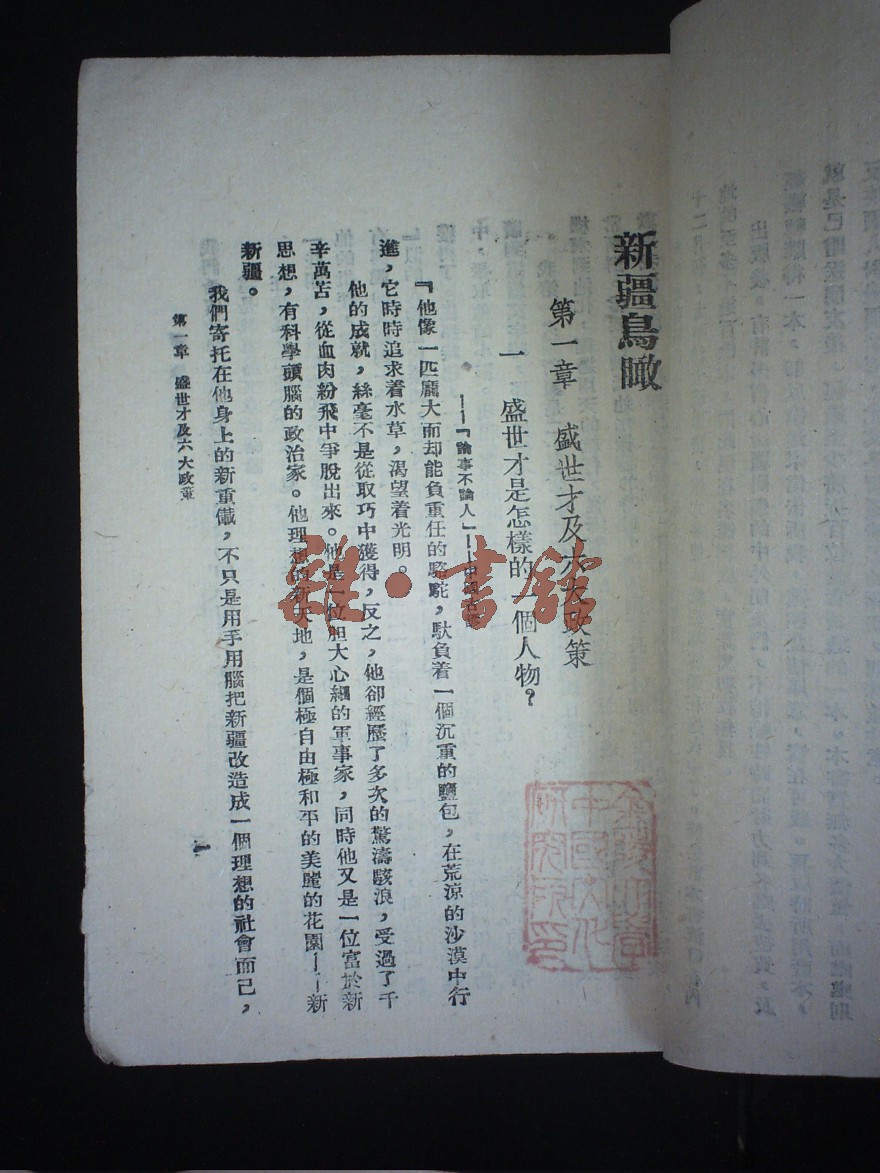 新疆鳥瞰
第一章　盛世才及六大政策
一　盛世才是怎樣的一個人物？
——『論事不論人』——中國古
『他像一匹龐大而却能負重任的駱駝，馱負着一個沉重的鹽包，在荒涼的沙漠中行
進，它時時追求着水草，渴望着光明。
他的成就，絲毫不是從取巧中獲得，反之，他卻經歷了多次的驚濤駭浪，受過了千
辛萬苦，從血肉紛飛中爭脫出來。他是一位胆大心細的軍事家，同時他又是一位富於新
思想，有科學頭腦的政治家。他理想的新天地，是個極自由極和平的美麗的花園——新
新疆。
我們寄托在他身上的新重儎，不只是用手用腦把新疆改造成一個理想的社會而已，
第一章　盛世才及六大政策
一
雜·書館
中國文化
研究所